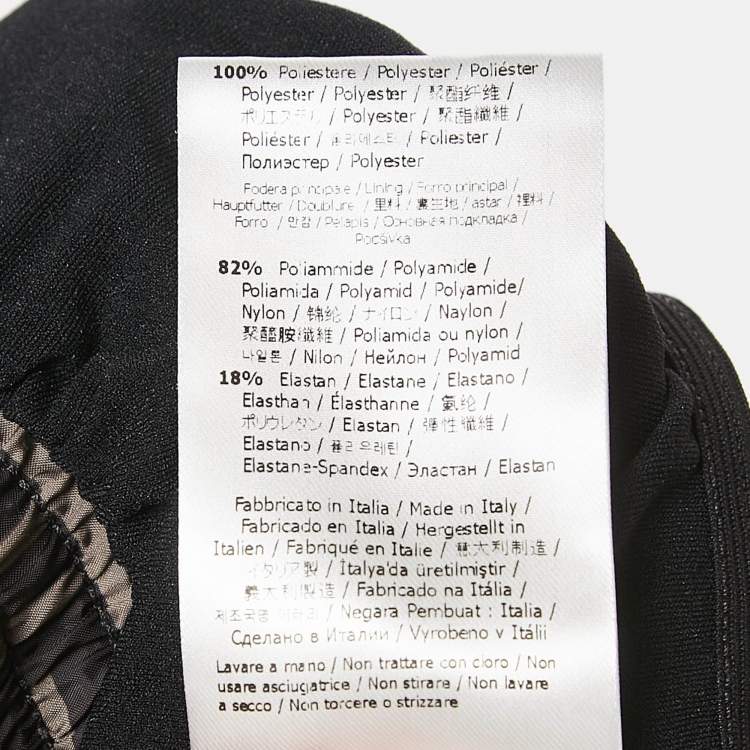 100% Poliestere / Polyester / Poliéster /
Polyester / Polyester / 聚酯纤维 /
ポリエステル / Polyester / 聚酯纖維 /
Poliéster / 폴리에스터 / Poliester /
Полиэстер / Polyester
Fodera principale / Lining / Forro principal /
Hauptfutter / Doublure / 里料 / 裏生地 / astar / 裡料 /
Forro / 안감 / Pelapis / Основная подкладка /
Počšivka
82% Poliammide / Polyamide /
Poliamida / Polyamid / Polyamide/
Nylon / 锦纶 / ナイロン / Naylon /
聚醯胺纖維 / Poliamida ou nylon /
나일론 / Nilon / Нейлон / Polyamid
18% Elastan / Elastane / Elastano /
Elasthan / Élasthanne / 氨纶 /
ポリウレタン / Elastan / 彈性纖維 /
Elastano / 폴리우레틴 /
Elastane-Spandex / Эластан / Elastan
Fabbricato in Italia / Made in Italy /
Fabricado en Italia / Hergestellt in
Italien / Fabriqué en Italie / 意大利制造 /
イタリア製 / İtalya'da üretilmiştir /
義大利製造 / Fabricado na Itália /
제조국명 이태리 / Negara Pembuat : Italia /
Сделано в Италии / Vyrobeno v Itálii
Lavare a mano / Non trattare con cloro / Non
usare asciugatrice / Non stirare / Non lavare
a secco / Non torcere o strizzare